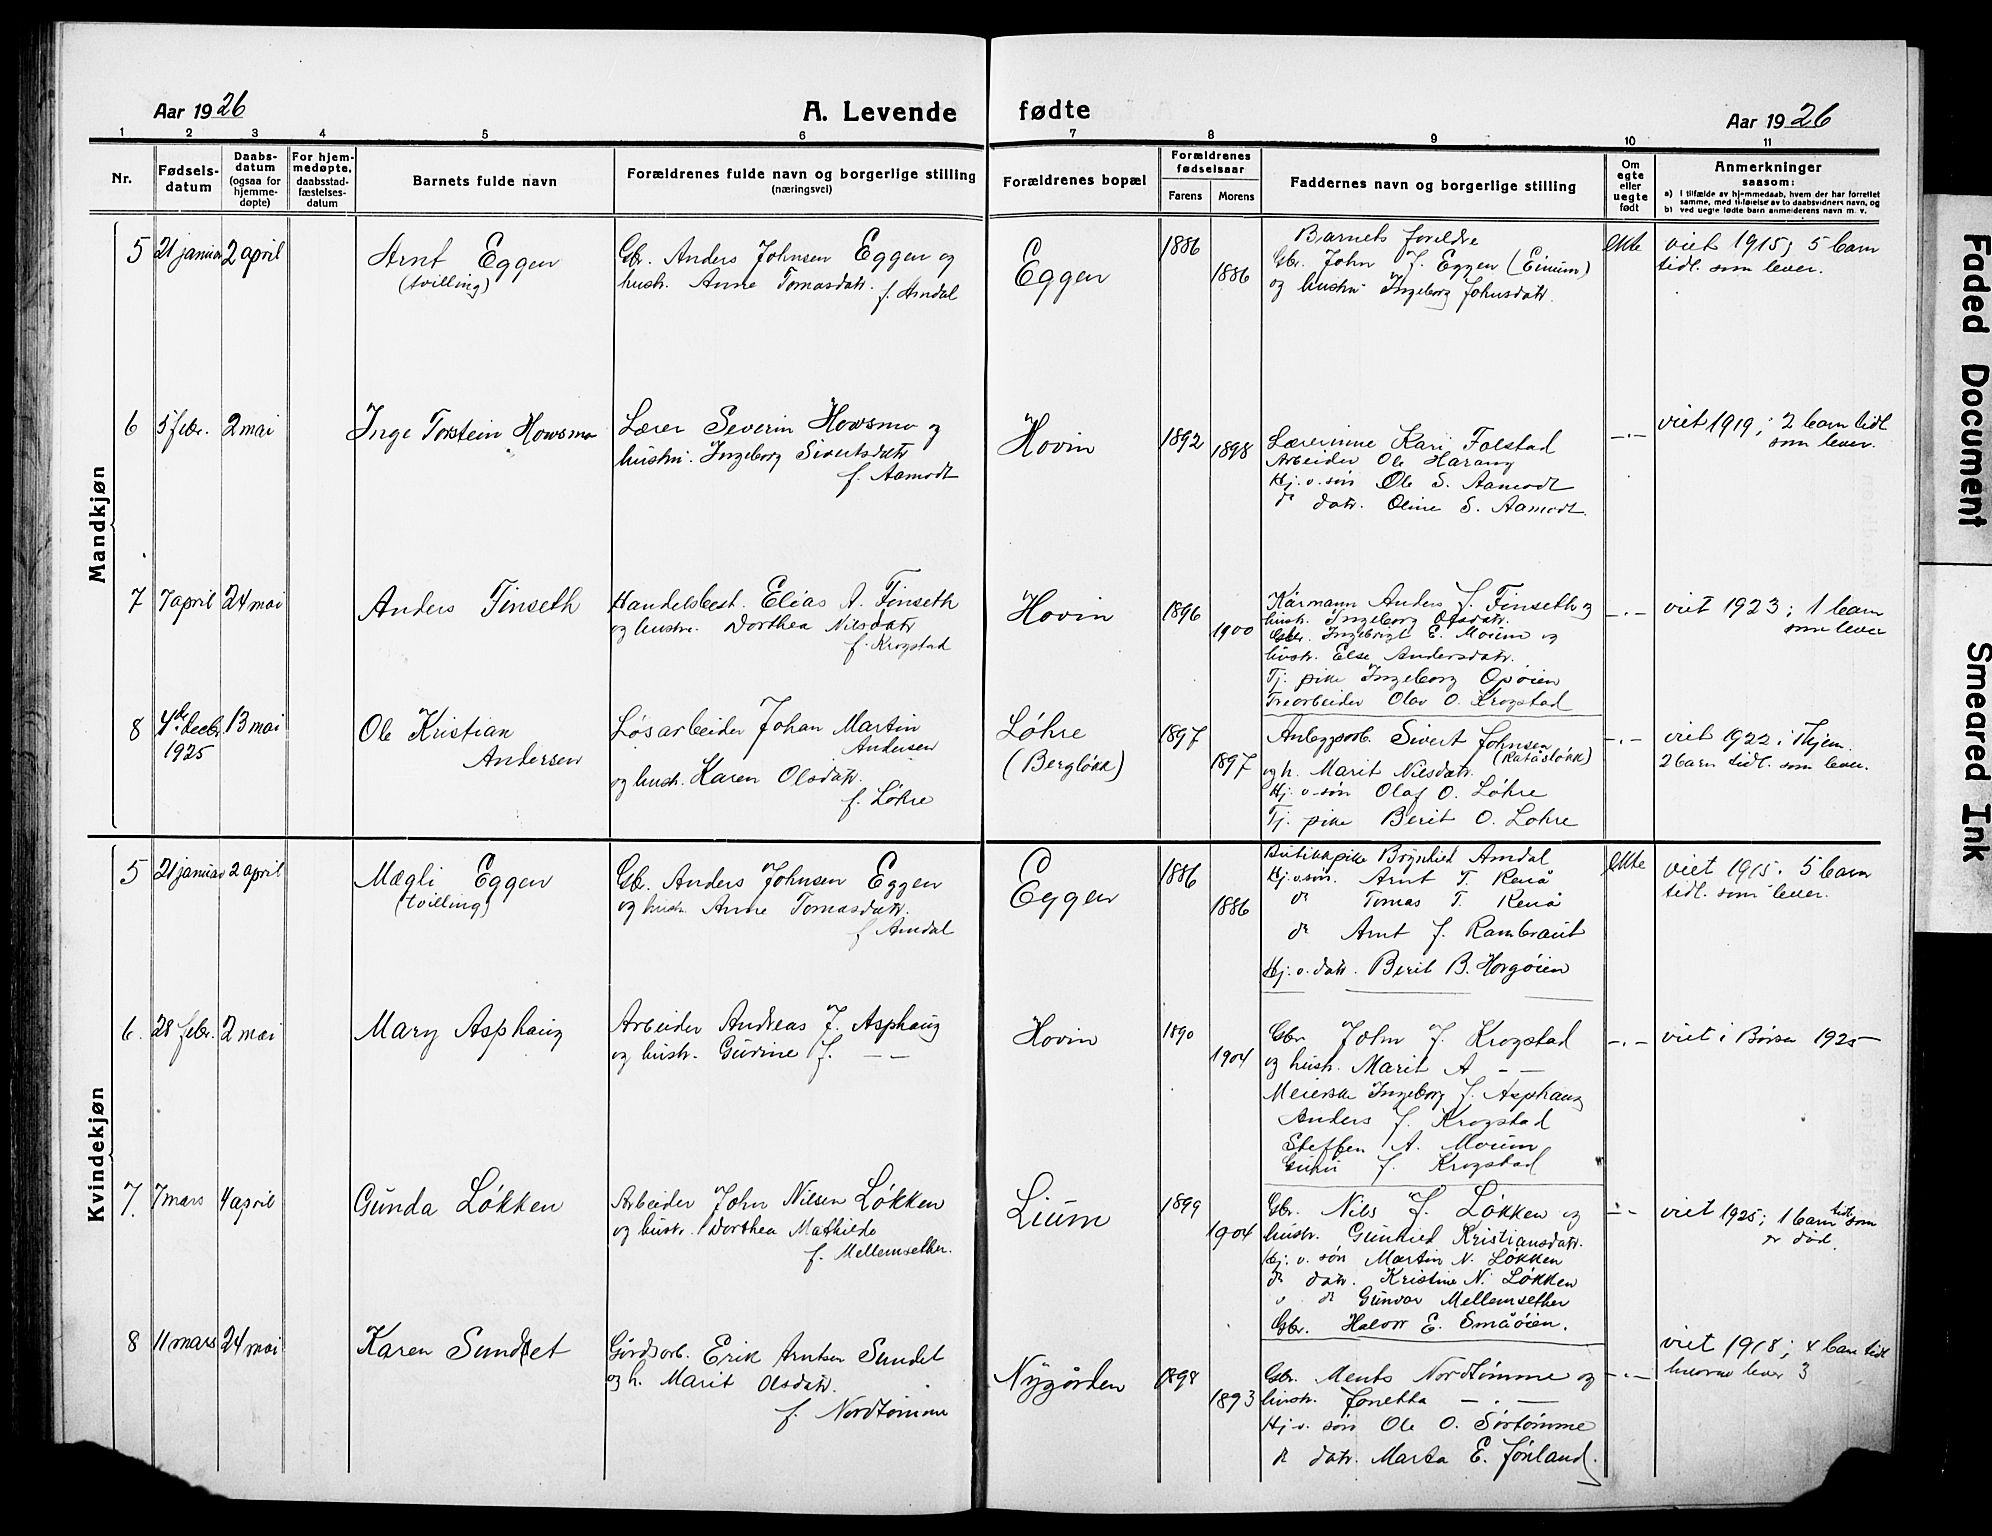 Aar 1926
A. Levende fødte
Aar 1926
1 2 3 4 5 6 7 8 9 10 11
Nr.
Fødsels-
datum
Daabs-
datum
(ogsaa for
hjemme-
døpte)
For hjem-
medøpte,
daabsstad-
fæstelses-
datum
Barnets fulde navn
Forældrenes fulde navn og borgerlige stilling
(næringsvei)
Forældrenes bopæl
Forældrenes
fødselsaar
Farens Morens
Faddernes navn og borgerlige stilling
Om
egte
eller
uegte
født
Anmerkninger
saasom:
a) I tilfælde av hjemmedaab, hvem der har forrettet
samme, med tilføielse av to daabsvidners navn, og
b) ved uegte fødte barn anmelderens navn m. v.
Mandkjøn
5 21 januar 2 april
Arnt Eggen
(tvilling)
Gbr. Anders Johnsen Eggen og
hustr. Anne Tomasdatr.
f. Amdal
Eggen
1886
1886
Barnets foreldre
Gbr. John J. Eggen (Einum)
og hustru Ingeborg Johnsdatr.
ekte
viet 1915; 5 barn
tidl. som lever.
6 5 febr. 2 mai
Inge Torstein Howsmo
Lærer Severin Howsmo og
hustru. Ingeborg Sivertsdatr
f. Aamodt
Hovin
1892
1898
Lærerinne Kari Folstad
Arbeider Ole Harang
Hj. v. søn Ole S. Aamodt
do datr. Oline S. Aamodt.
—.—
viet 1919; 2 barn tidl
som lever.
7 7 april 24 mai
Anders Finseth
Handelsbest. Elias A. Finseth
og hustr. Dorthea Nilsdatr
f. Krogstad
Hovin
1896
1900
Kårmann Anders J. Finseth og
hustr. Ingeborg Olsdatr.
Gbr. Ingebrigt E. Moum og
hustr. Else Andersdatr.
Tj. pike Ingeborg Opøien
Trearbeider Olav O. Krogstad
—.—
viet 1923; 1 barn
som lever
8 4de decbr 13 mai
1925
Ole Kristian
Andersen
Løsarbeider Johan Martin
Andersen
og hustr. Karen Olsdatr.
f. Løhre
Løhre
(Bergløkk)
1897
1897
Anleggsarb. Sivert Johnsen
(Katåsløkk)
og h. Marit Nilsdatr.
Hj. v. søn Olaf O. Løhre
Tj. pike Berit O. Lohre
—.—
viet 1922 i Thjem.
2 barn tidl. som lever.
Kvindekjøn
5 21 januar 2 april
Mægli Eggen
(tvilling)
Gbr. Anders Johnsen Eggen
og hustr. Anne Tomasdatr.
f Amdal
Eggen
1886
1886
Butikkpike Brynhild Amdal
Hj. v. søn. Arnt T. Renå
do Tomas T. Renå
do Arnt J. Rambraut
Hj. v. datr. Berit B. Horgøien
ekte
viet 1915. 5 barn
tidl. som lever.
6. 28 febr. 2 mai
Mary Asphaug
Arbeider Andreas J. Asphaug
og hustr. Gurine J. — —
Hovin
1890
1904
Gbr John J. Krogstad
og hustr. Marit A — —
Meierske Ingeborg J. Asphaug
Anders J. Krogstad
Steffen A. Moum
Guru J. Krogstad
—.—
viet i Børsa 1925
7. 7 mars 4 april
Gunda Løkken
Arbeider John Nilsen Løkken
og hustr. Dorthea Mathilde
f. Mellemsether.
Lium
1899
1904
Gbr. Nils J. Løkken og
hustr. Gunhild Kristiansdatr.
Hj. v. søn Martin N. Løkken
do datr. Kristine N. Løkken
" do Gunvor Mellemsether
Gbr. Halvor E. Småøien.
—.—
viet 1925; 1 barn tidl. som
er død.
8 11 mars 24 mai
Karen Sundset
Gårdsarb. Erik Arntsen Sundet
og h. Marit Olsdatr.
f. Nordtømme
Nygården
1898
1893
Gbr. Ments Nordtømme og
hustr. Jonetta — . —
Hj. v. søn Ole O. Sørtømme
do datr. Marta E. Fønland.
—.—
viet 1918; 4 barn tidl
hvorav lever 3
Faded Document
Smeared Ink